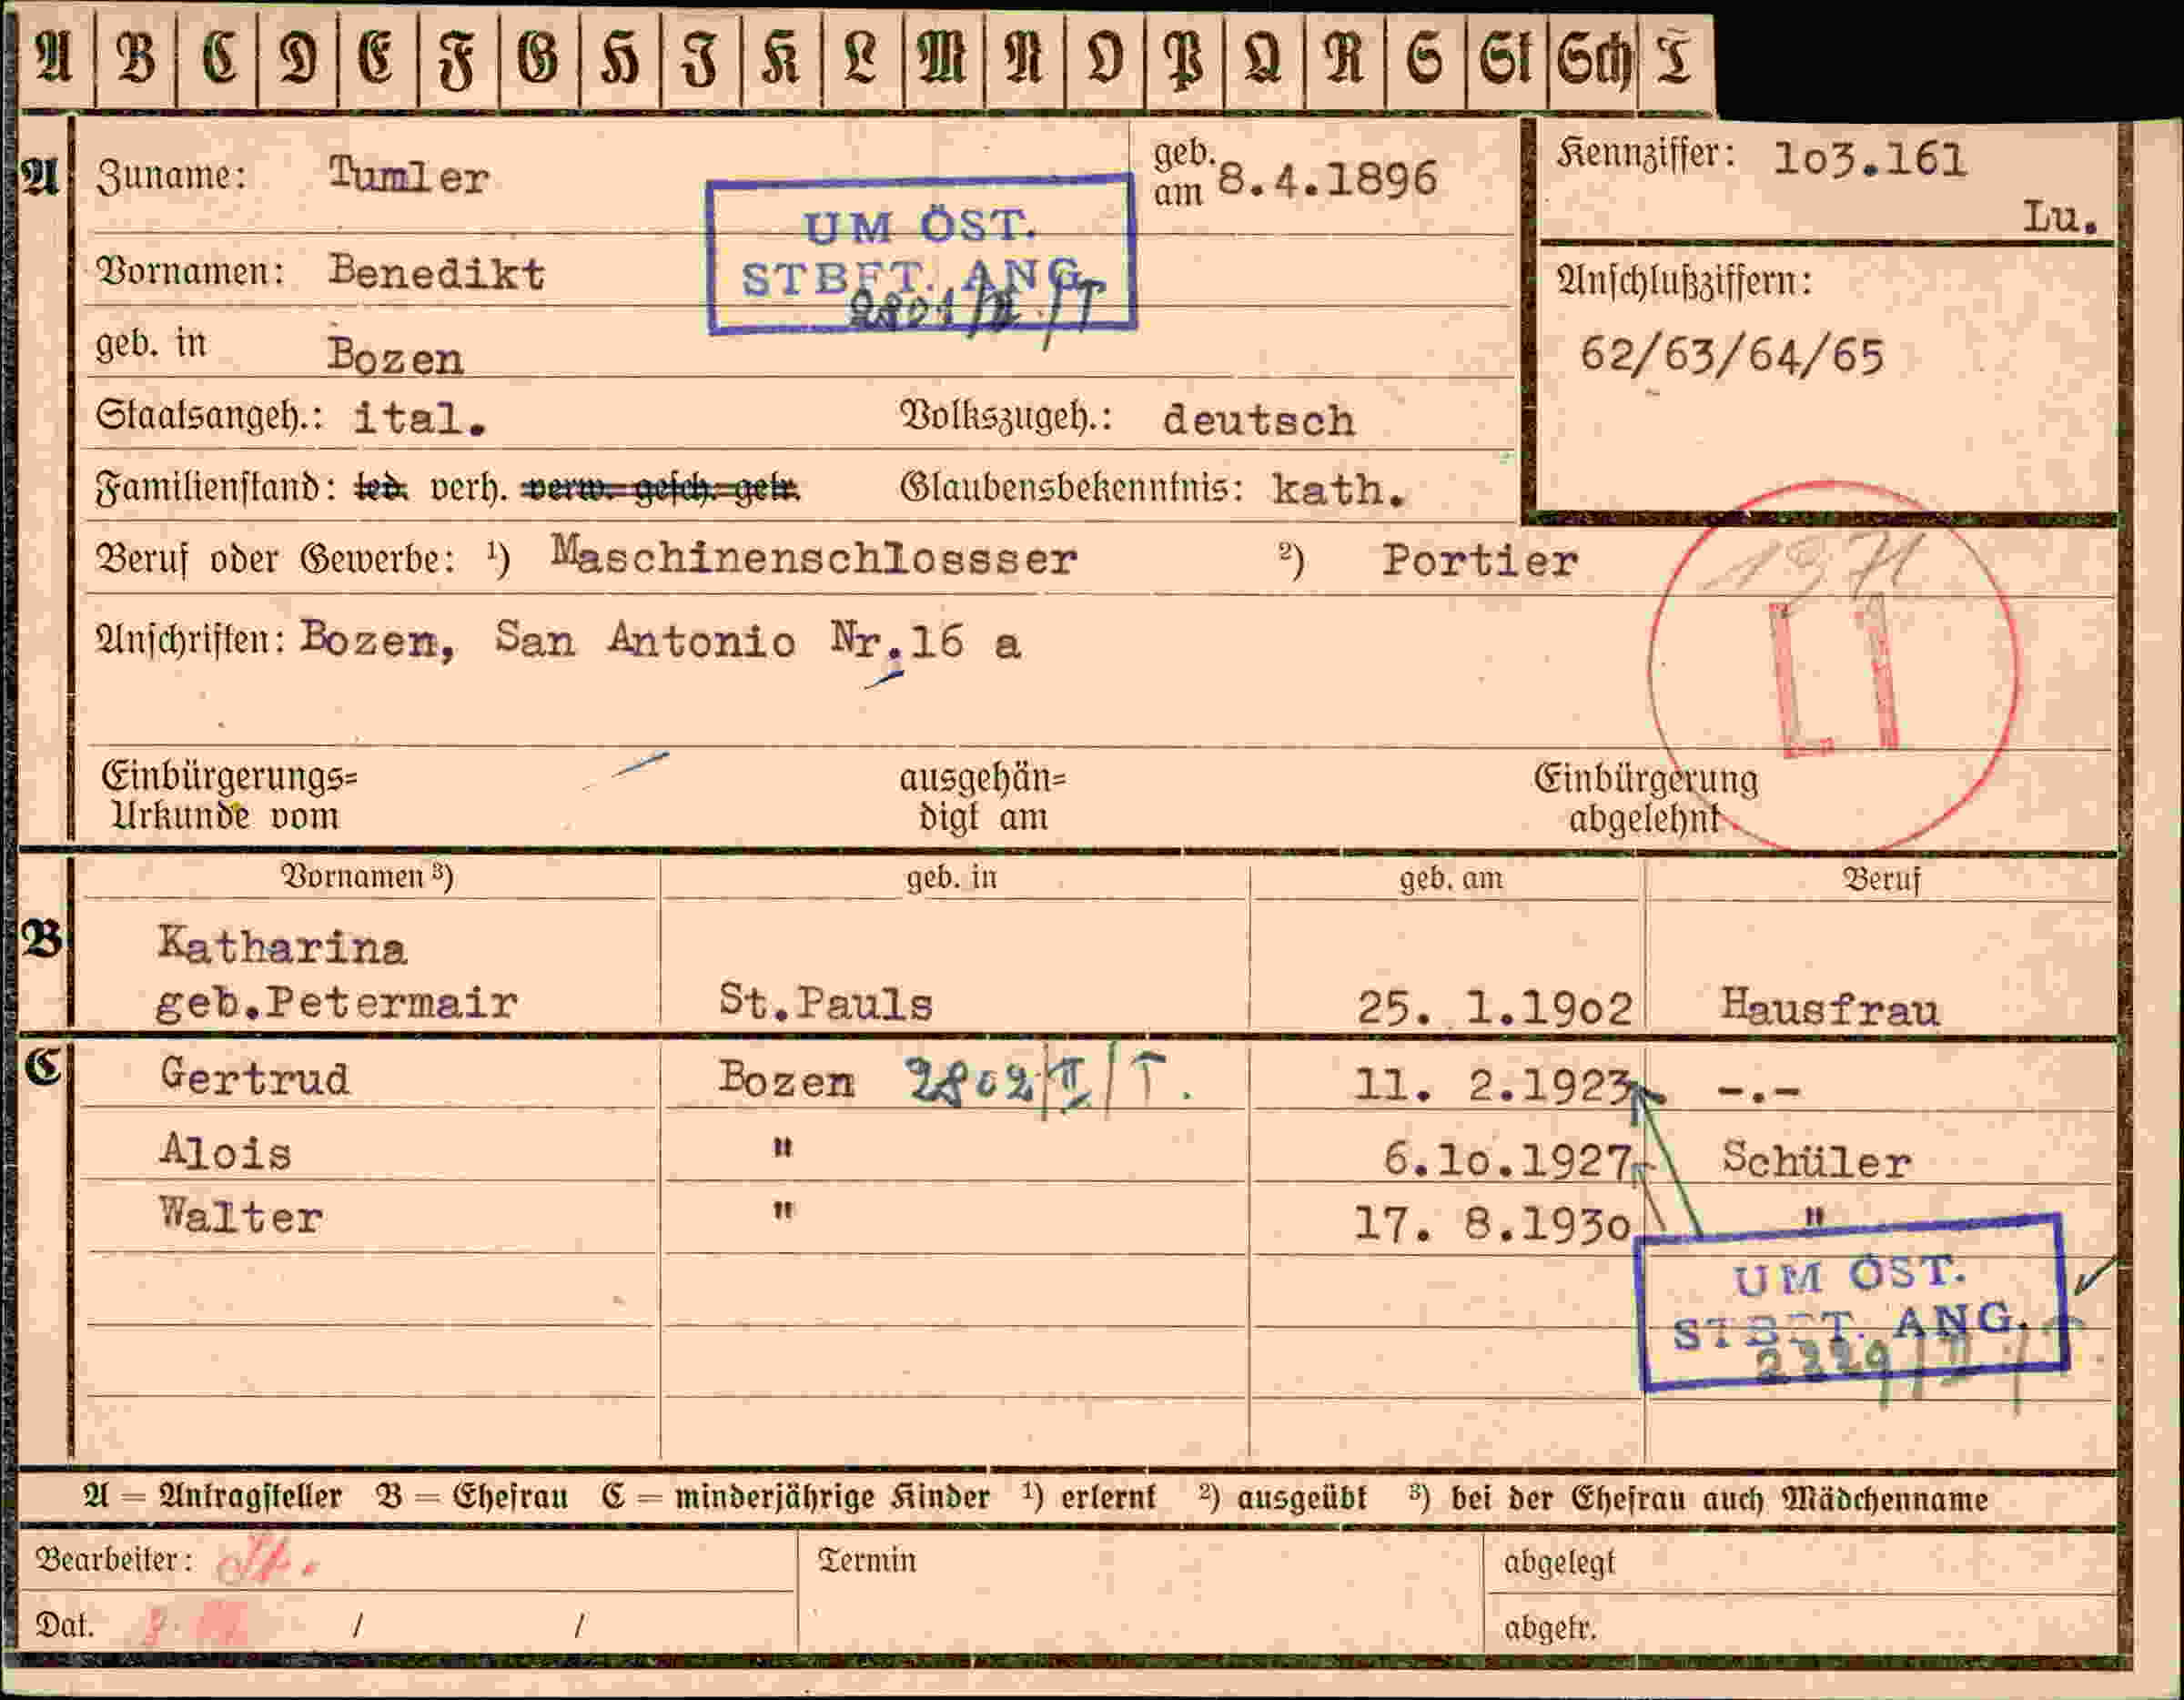 A B C D E F G H J K L M N O P Q R S St Sch T
A Zuname: Tumler geb. am 8.4.1896 Kennziffer: 1o3.161
Lu.
UM ÖST.
STBFT. ANG.
2801/II./T
Vornamen: Benedikt
Anschlußziffern:
62/63/64/65
geb. in Bozen
Staatsangeh.: ital. Volkszugeh.: deutsch
Familienstand: led. verh. verw. gesch. getr. Glaubensbekenntnis: kath.
Beruf oder Gewerbe: ¹) Maschinenschlossser ²) Portier
Anschriften: Bozen, San Antonio Nr.16 a
Einbürgerungs= ausgehän= Einbürgerung
Urkunde vom digt am abgelehnt
Vornamen ³) geb. in geb. am Beruf
B Katharina
geb.Petermair St.Pauls 25. 1.19o2 Hausfrau
C Gertrud Bozen 2802/II/T. 11. 2.1923 -.-
Alois " 6.1o.1927 Schüler
Walter " 17. 8.193o "
UM ÖST.
STBFT. ANG.
A = Antragsteller B = Ehefrau C = minderjährige Kinder ¹) erlernt ²) ausgeübt ³) bei der Ehefrau auch Mädchenname
Bearbeiter: Termin abgelegt
Dat. / / abgetr.